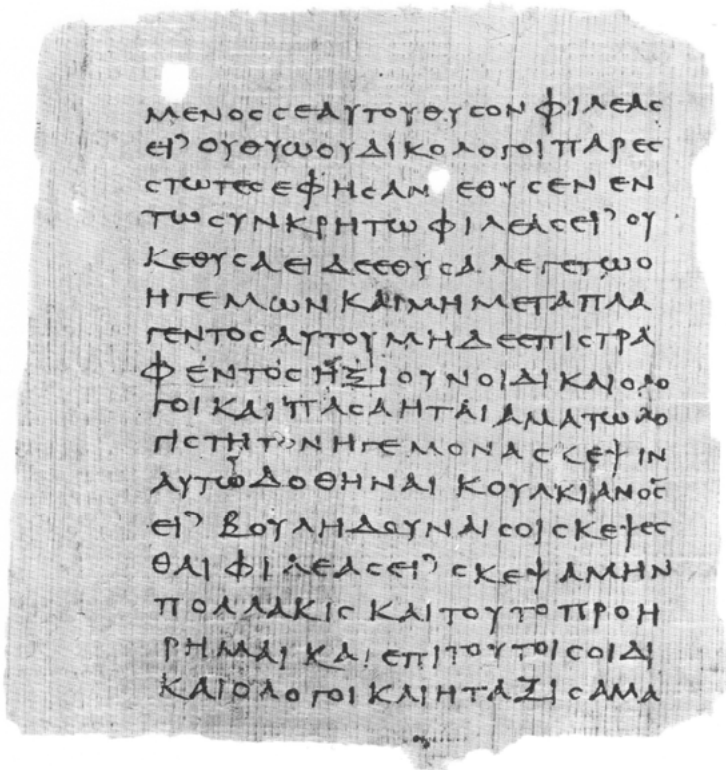 ΜΕΝΟϹϹΕΑΥΤΟΥΘΥϹΟΝ ΦΙΛΕΑϹ
ΕΙ᾽ ΟΥΘΥΩΟΥΔΙΚΟΛΟΓΟΙΠΑΡΕϹ
ϹΤΩΤΕϹΕΦΗϹΑΝ ΕΘΥϹΕΝ ΕΝ
ΤΩϹΥΝΚΡΗΤΩΦΙΛΕΑϹΕΙ᾽ΟΥ
ΚΕΘΥϹΑΕΙΔΕΕΘΥϹΑ ΛΕΓΕΤΩΟ
ΗΓΕΜΩΝ ΚΑΙΜΗΜΕΤΑΠΛΑ
ΓΕΝΤΟϹΑΥΤΟΥΜΗΔΕΕΠΙϹΤΡΑ
ΦΕΝΤΟϹΗΞΙΟΥΝΟΙΔΙΚΑΙΟΛΟ
ΓΟΙΚΑΙΠΑϹΑΗΤΑΞΙΑΜΑΤΩΛΟ
ΓΙϹΤΗΤΟΝΗΓΕΜΟΝΑϹΚΕΨΙΝ
ΑΥΤΩΔΟΘΗΝΑΙ ΚΟΥΛΚΙΑΝΟϹ
ΕΙ᾽ ΒΟΥΛΗΔΟΥΝΑΙϹΟΙϹΚΕΨΕϹ
ΘΑΙΦΙΛΕΑϹΕΙ᾽ϹΚΕΨΑΜΗΝ
ΠΟΛΛΑΚΙϹ ΚΑΙΤΟΥΤΟΠΡΟΗ
ΡΗΜΑΙ ΚΑΙΕΠΙΤΟΥΤΟΙϹΟΙΔΙ
ΚΑΙΟΛΟΓΟΙΚΑΙΗΤΑΞΙϹΑΜΑ